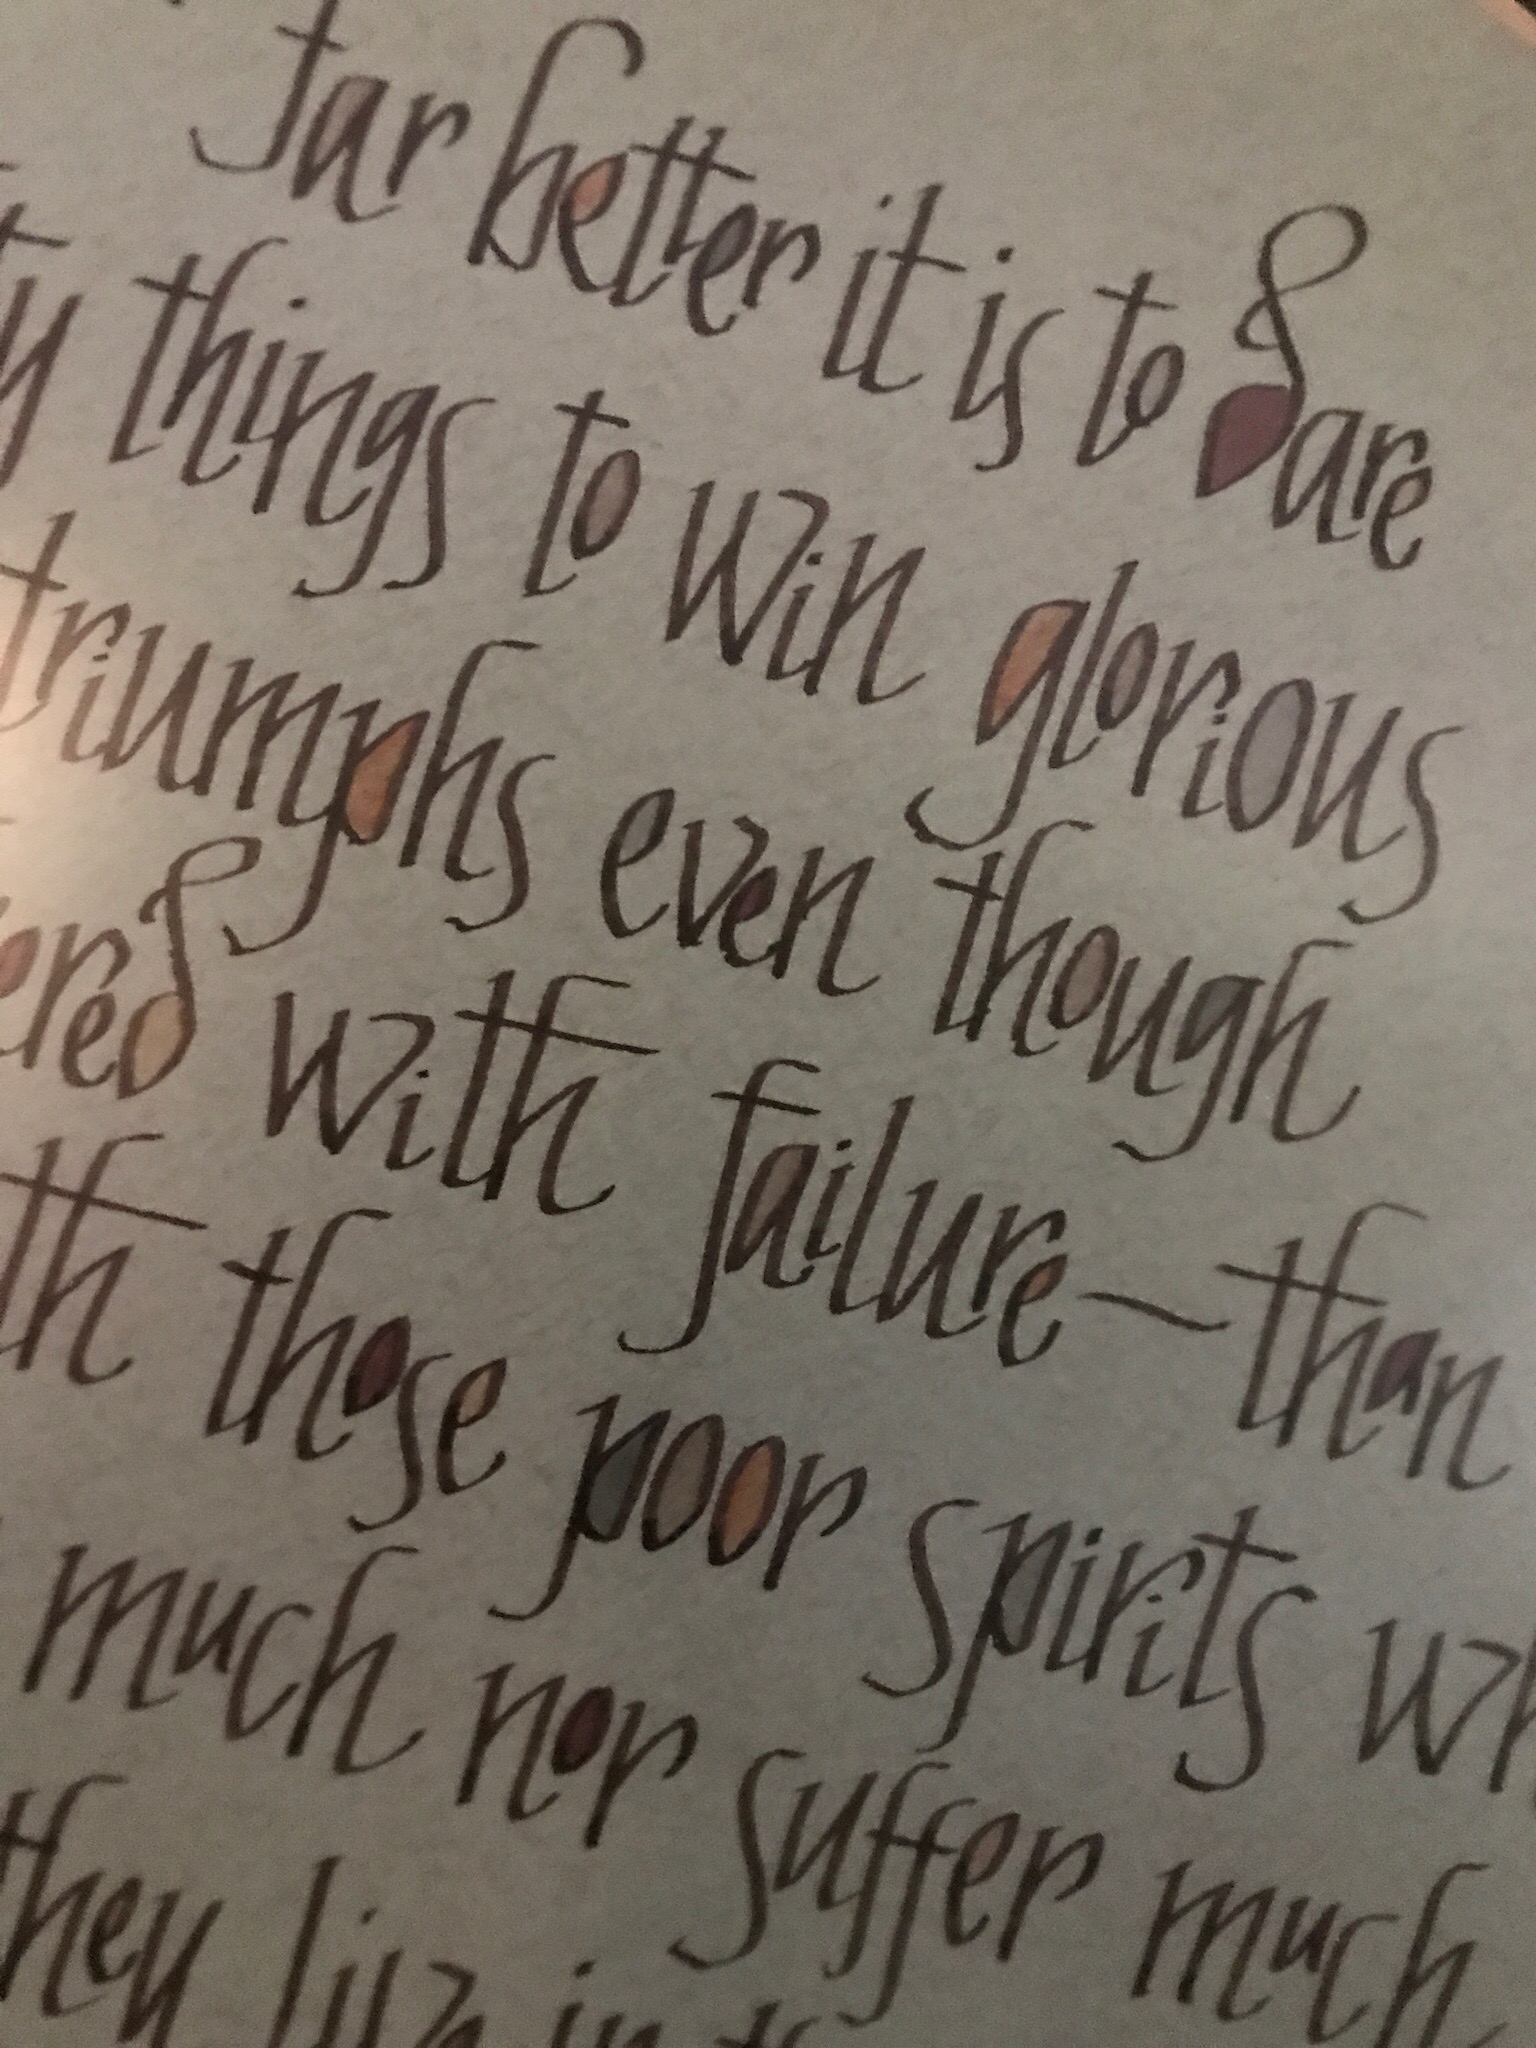 far better it is to dare
y things to win glorious
triumphs even though
ered with failure~than
th those poor spirits wh
much nor suffer much
they live in t